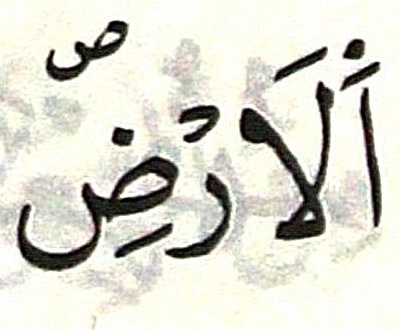 اَلْاَرْضِ ص